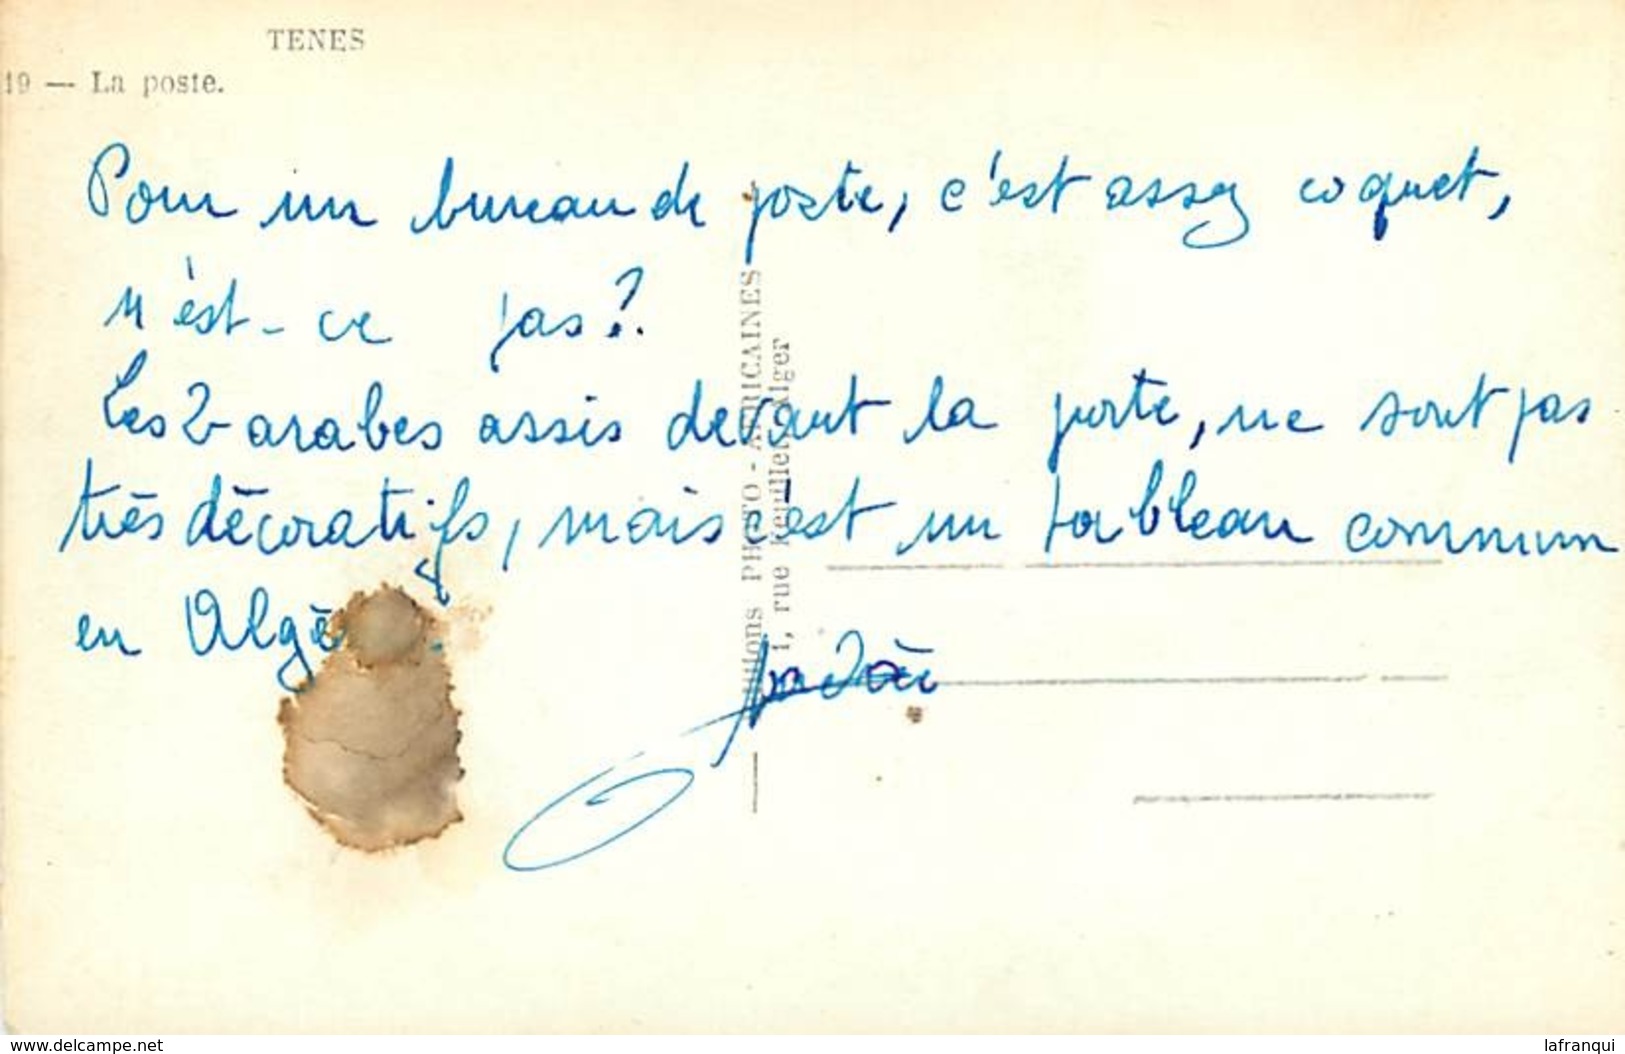 TENES
19 — La poste.
Pour un bureau de poste, c'est assez coquet,
n'est-ce pas?
Les 2 arabes assis devant la porte, ne sont pas
très décoratifs, mais c'est un tableau commun
en Algé
PHOTO-AFRICAINES
1, rue Alger
www.delcampe.net
lafranqui